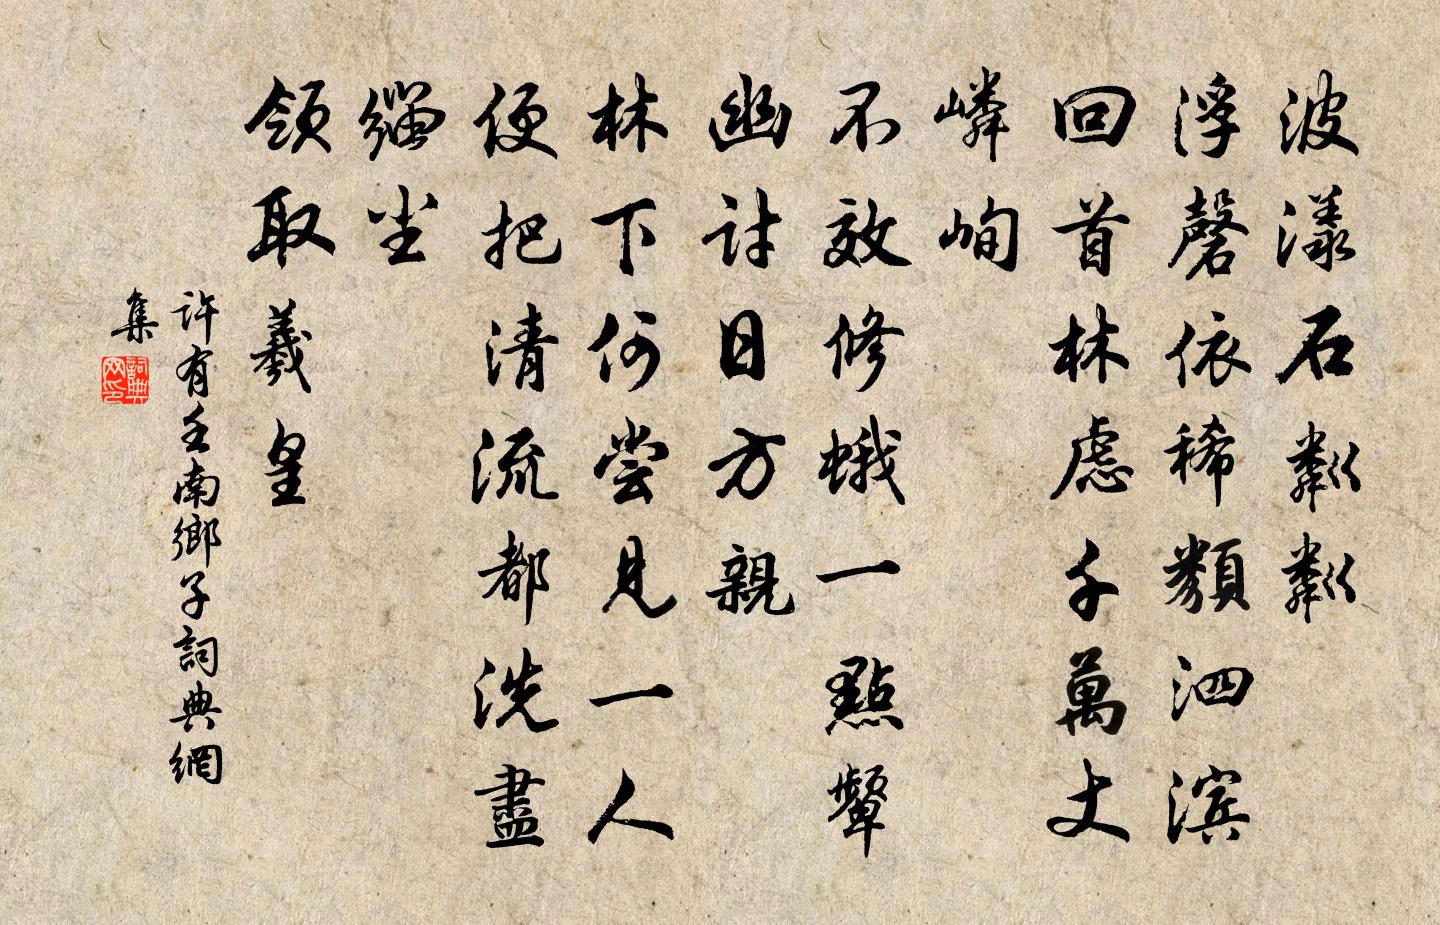 波漾石粼粼
浮磬依稀類泗滨
回首林慮千萬丈
嶙峋
不效修蛾一點顰
幽討日方親
林下何嘗見一人
便把清流都洗盡
纓尘
領取羲皇
許有壬南鄉子詞典網
集
詞典
网印